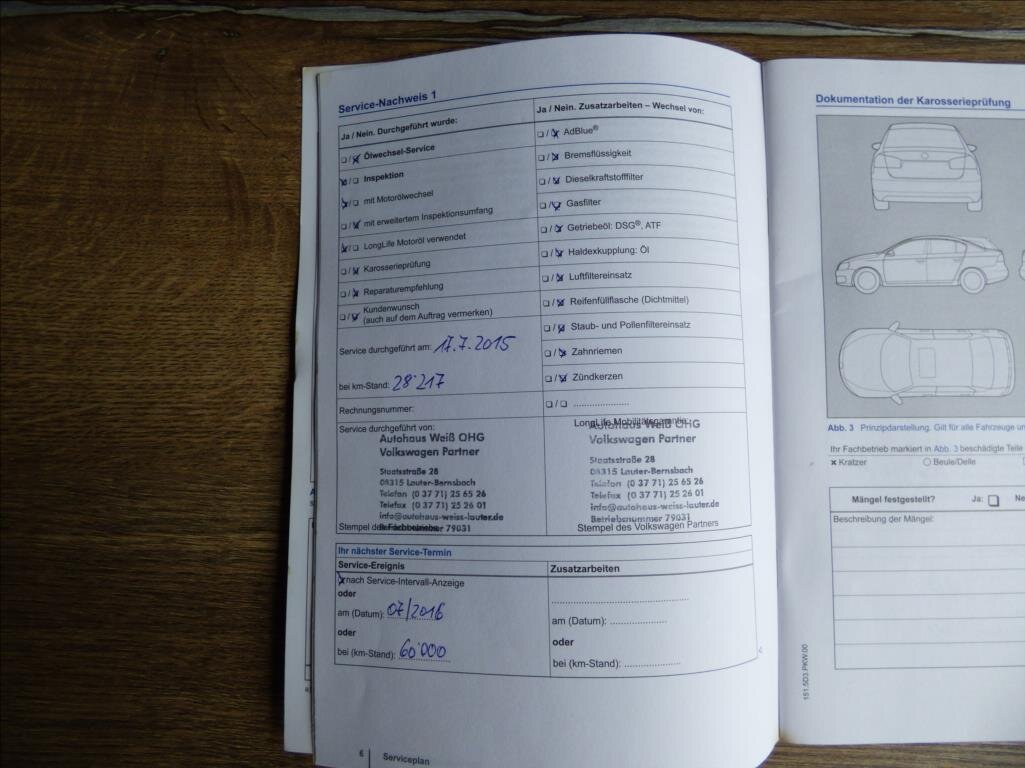 Service-Nachweis 1
Ja / Nein. Durchgeführt wurde:
❏ / ❏ Ölwechsel-Service
❏ / ❏ Inspektion
❏ / ❏ mit Motorölwechsel
❏ / ❏ mit erweitertem Inspektionsumfang
❏ / ❏ LongLife Motoröl verwendet
❏ / ❏ Karosserieprüfung
❏ / ❏ Reparaturempfehlung
❏ / ❏ Kundenwunsch
(auch auf dem Auftrag vermerken)
Service durchgeführt am: 17.7.2015
bei km-Stand: 28'217
Rechnungsnummer:
Service durchgeführt von:
Autohaus Weiß OHG
Volkswagen Partner
Staatsstraße 28
08315 Lauter-Bernsbach
Telefon (0 37 71) 25 65 26
Telefax (0 37 71) 25 26 01
info@autohaus-weiss-lauter.de
Betriebsnummer 79031
Stempel des Fachbetriebs
Ja / Nein. Zusatzarbeiten – Wechsel von:
❏ / ❏ AdBlue®
❏ / ❏ Bremsflüssigkeit
❏ / ❏ Dieselkraftstofffilter
❏ / ❏ Gasfilter
❏ / ❏ Getriebeöl: DSG®, ATF
❏ / ❏ Haldexkupplung: Öl
❏ / ❏ Luftfiltereinsatz
❏ / ❏ Reifenfüllflasche (Dichtmittel)
❏ / ❏ Staub- und Pollenfiltereinsatz
❏ / ❏ Zahnriemen
❏ / ❏ Zündkerzen
❏ / ❏ .....................
LongLife Mobilitätsgarantie:
Autohaus Weiß OHG
Volkswagen Partner
Staatsstraße 28
08315 Lauter-Bernsbach
Telefon (0 37 71) 25 65 26
Telefax (0 37 71) 25 26 01
info@autohaus-weiss-lauter.de
Betriebsnummer 79031
Stempel des Volkswagen Partners
Ihr nächster Service-Termin
Service-Ereignis
nach Service-Intervall-Anzeige
oder
am (Datum): 07/2016
oder
bei (km-Stand): 60'000
Zusatzarbeiten
am (Datum): .....................
oder
bei (km-Stand): .....................
6 Serviceplan
Dokumentation der Karosserieprüfung
Abb. 3 Prinzipdarstellung. Gilt für alle Fahrzeuge
Ihr Fachbetrieb markiert in Abb. 3 beschädigte Teile
× Kratzer ○ Beule/Delle
Mängel festgestellt? Ja: ❏
Beschreibung der Mängel:
151.5D3.PKW.00